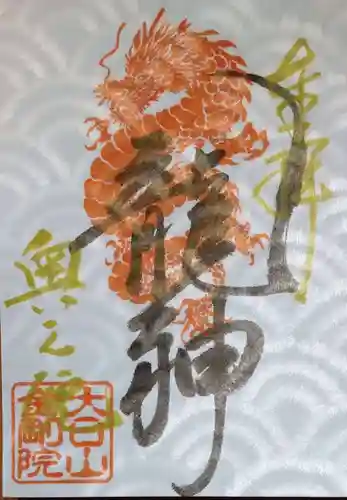 奉拝
龍神
奥之院
大谷山
金剛院